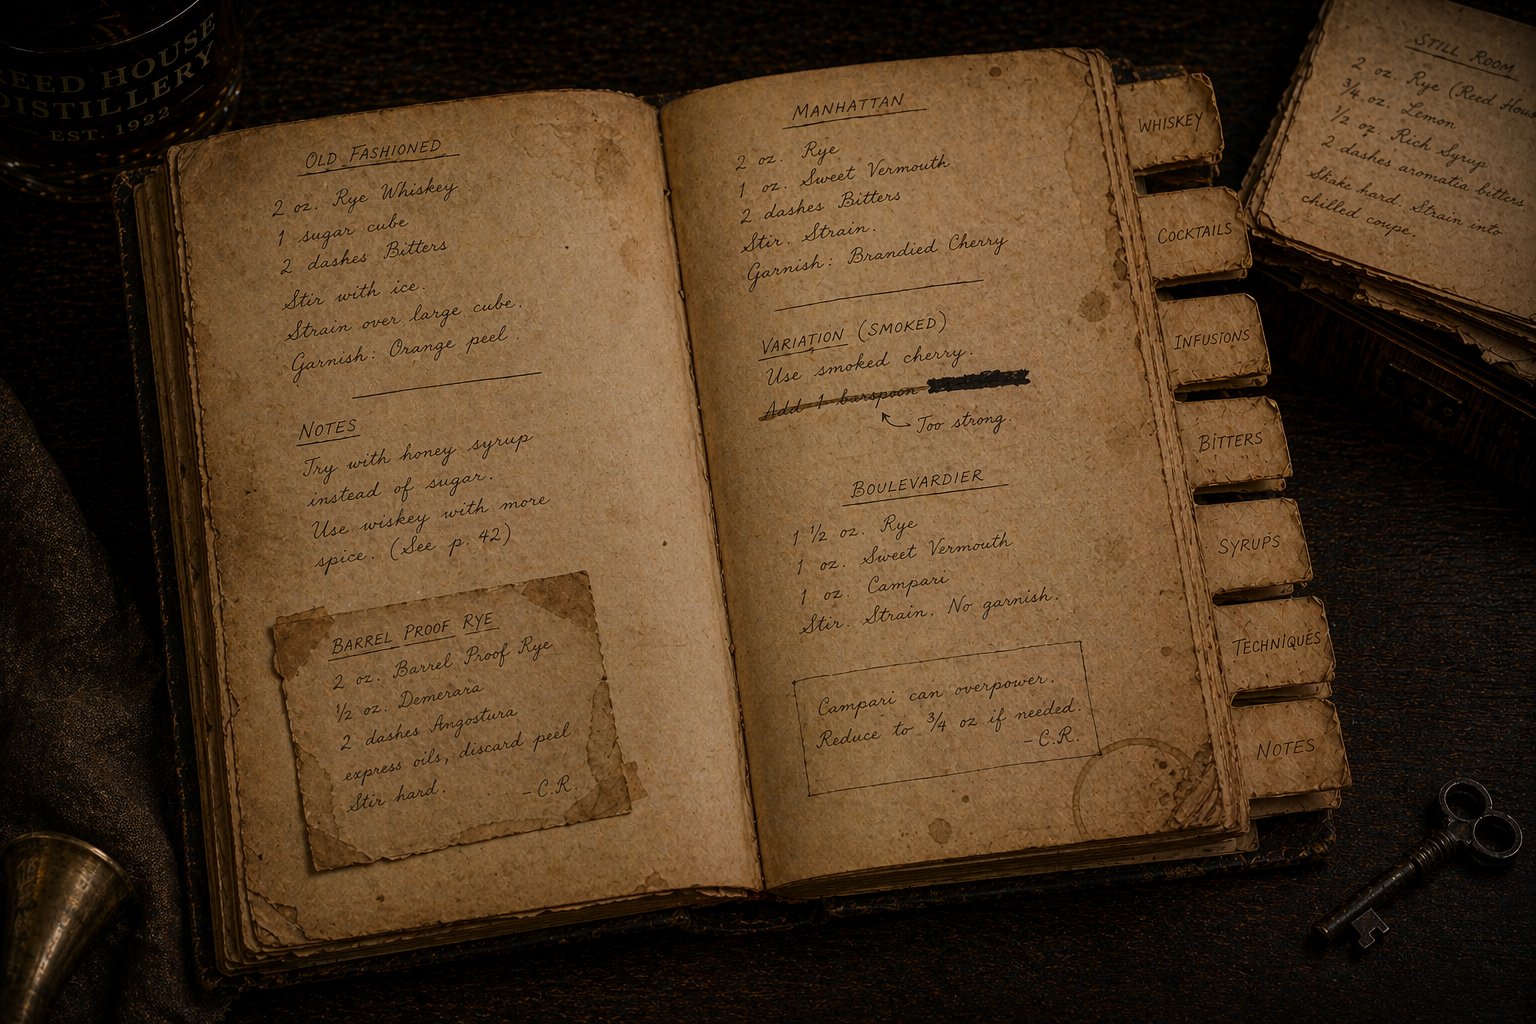 REED HOUSE
DISTILLERY
EST. 1922
OLD FASHIONED
2 oz. Rye Whiskey
1 sugar cube
2 dashes Bitters
Stir with ice.
Strain over large cube.
Garnish: Orange peel.
NOTES
Try with honey syrup
instead of sugar.
Use wiskey with more
spice. (See p. 42)
BARREL PROOF RYE
2 oz. Barrel Proof Rye
1/2 oz. Demerara
2 dashes Angostura
express oils, discard peel
Stir hard.
—C.R.
MANHATTAN
2 oz. Rye
1 oz. Sweet Vermouth
2 dashes Bitters
Stir. Strain.
Garnish: Brandied Cherry
VARIATION (SMOKED)
Use smoked cherry.
Add 1 barspoon
Too strong.
BOULEVARDIER
1 1/2 oz. Rye
1 oz. Sweet Vermouth
1 oz. Campari
Stir. Strain. No garnish.
Campari can overpower.
Reduce to 3/4 oz if needed.
—C.R.
WHISKEY
COCKTAILS
INFUSIONS
BITTERS
SYRUPS
TECHNIQUES
NOTES
STILL ROOM
2 oz. Rye (Reed Hous
3/4 oz. Lemon
1/2 oz. Rich Syrup
2 dashes aromatia bitters
Shake hard. Strain into
chilled coupe.